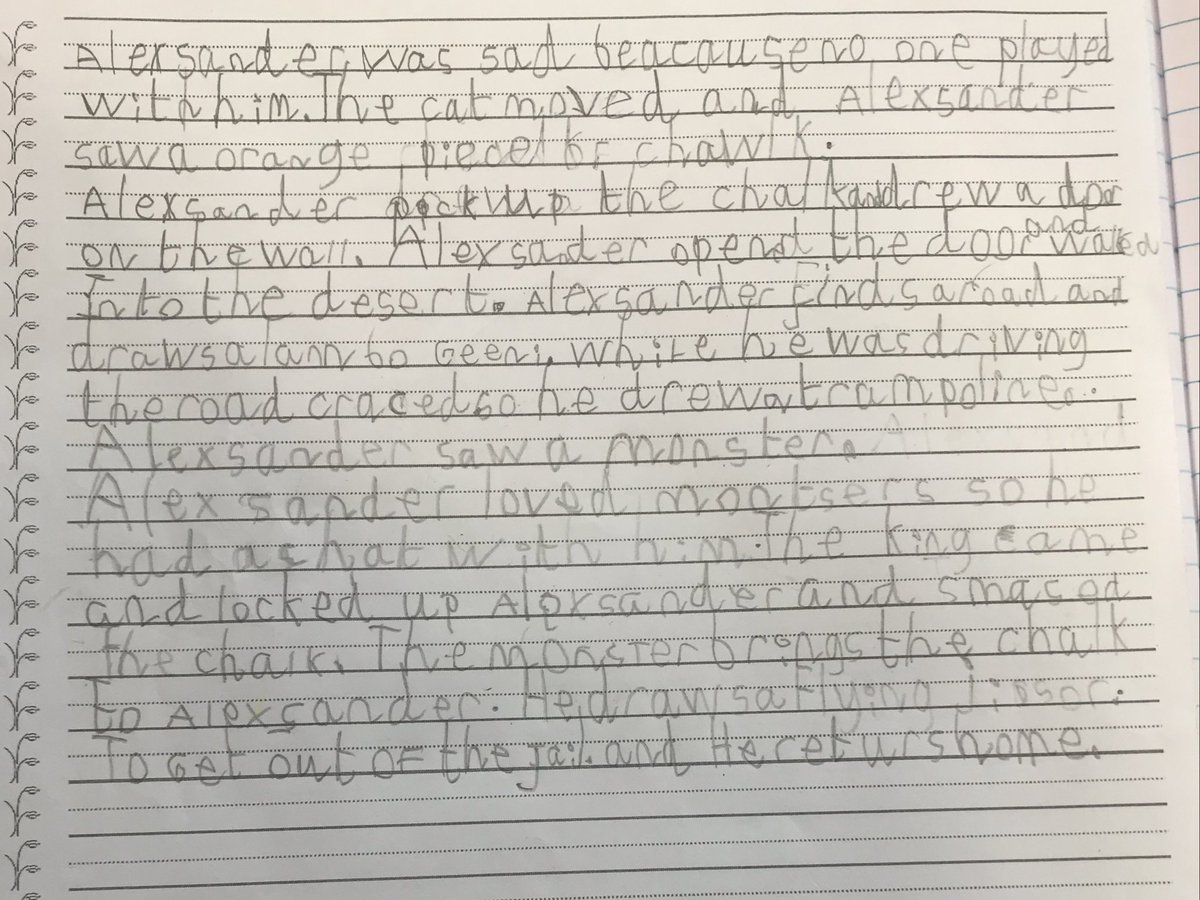 Alexsander was sad beacause no one played
with him. The cat moved and Alexsander
saw a orange piece of chawlk.
Alexsander pickup the chalk and drew a door
on the wall. Alexsander openst the door and walked
Into the desert. Alexsander finds a road and
draws a while he was driving
the road craced so he drew a trampoline.
Alexsander saw a monster.
Alexsander loved so he
had a with him. The king came
and locked up Alexsander and smascd
the chalk. The monster brongs the chalk
to Alexsander. He draws a flying
To Get out of the jail. and He returs home.